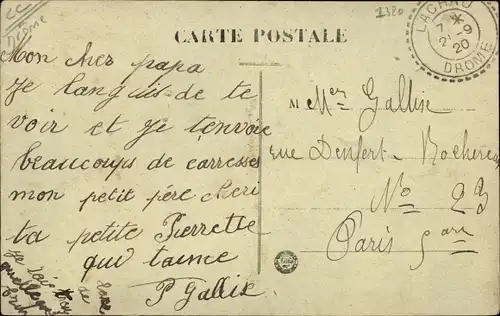 CC
Drôme
2320
CARTE POSTALE
LACHAU
7 *
2 -9
20
DROME
Mon cher papa
je languis de te
voir et je t'envoie
beaucoups de carresses
mon petit père chéri
ta petite Pierrette
qui t'aime
P Gallix
M Mer Gallixe
rue Denfert-Rochereau
No 23
Paris 5 arr
je
de